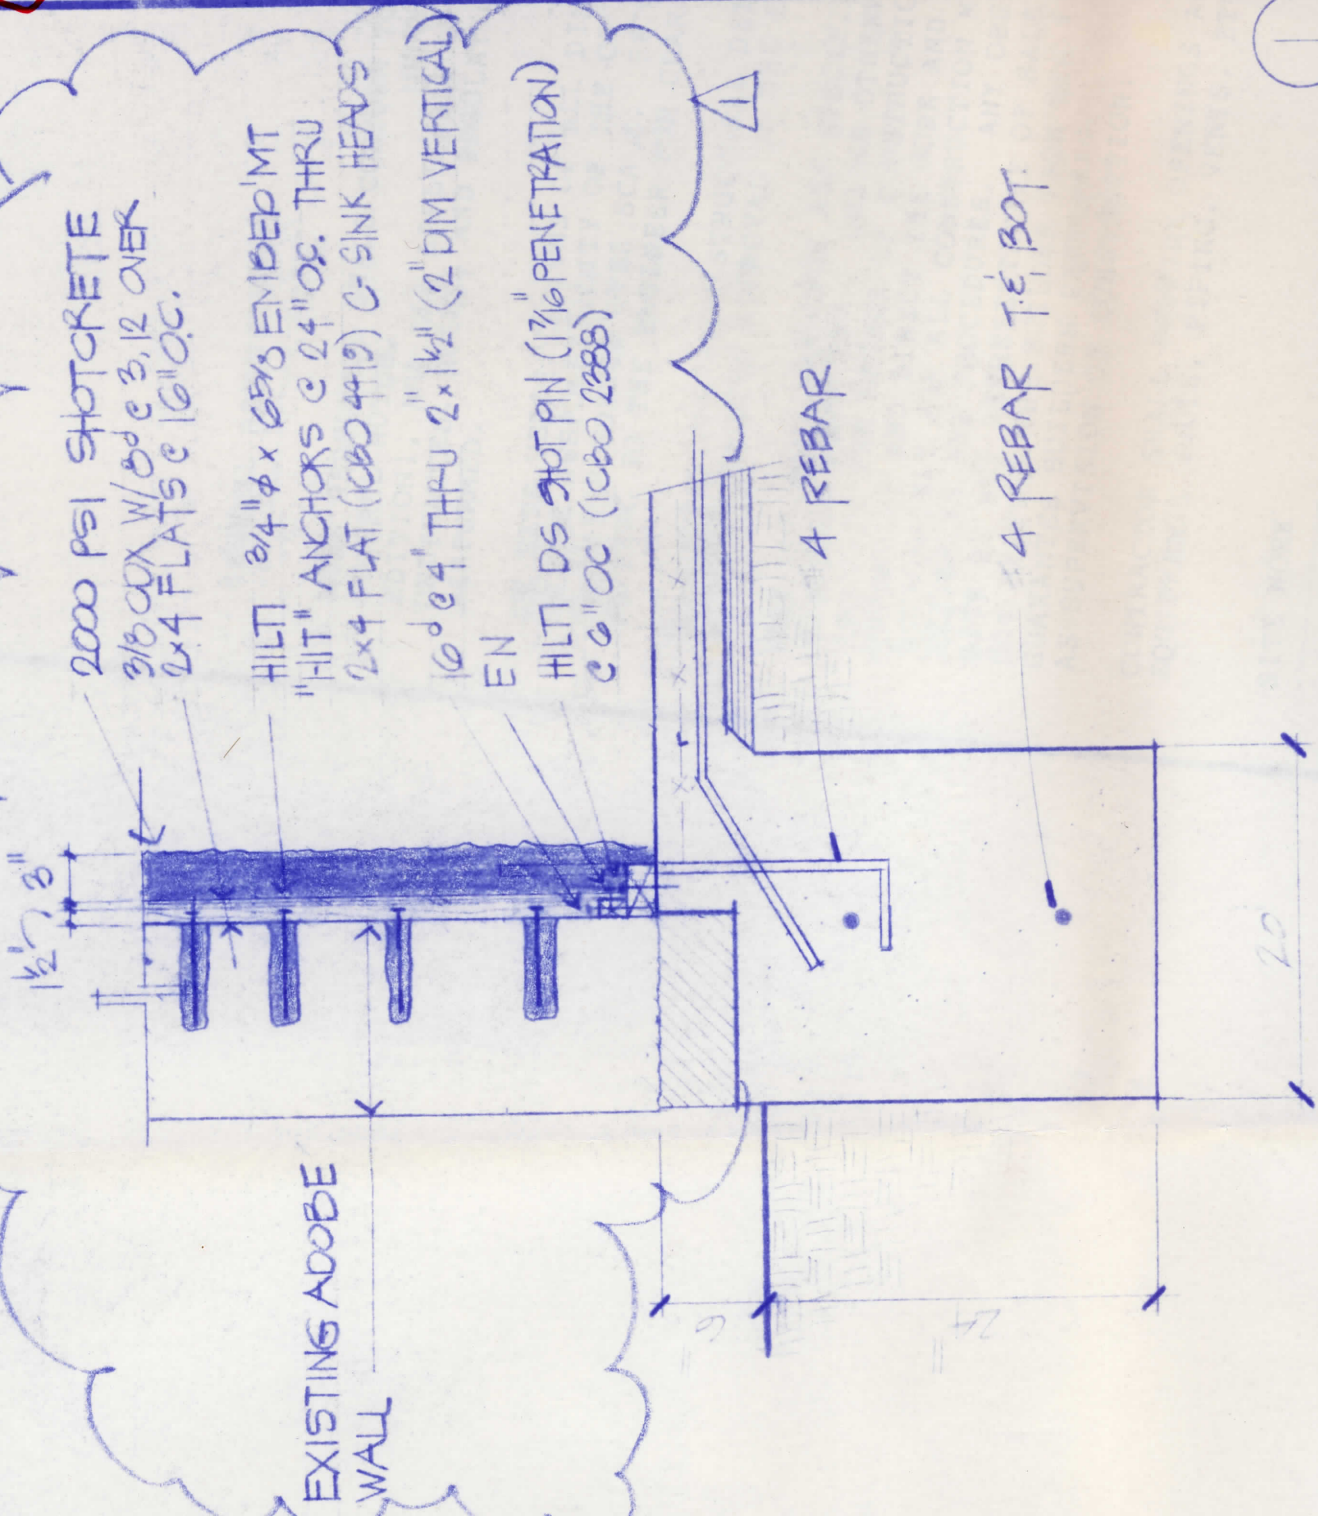 2000 PSI SHOTCRETE
3/8 CDX W/ 8d @ 3,12 OVER
2x4 FLATS @ 16" O.C.
HILTI 3/4"φ x 6 5/8 EMBED'MT
"HIT" ANCHORS @ 24" O.C. THRU
2x4 FLAT (ICBO 4419) C-SINK HEADS
16d @ 4" THRU 2"x1½" (2" DIM VERTICAL)
EN
HILTI DS SHOT PIN (1 7/16" PENETRATION)
@ 6" OC (ICBO 2388)
1
1
#4 REBAR
#4 REBAR T.&BOT.
1½"
3"
EXISTING ADOBE
WALL
6"
24"
20